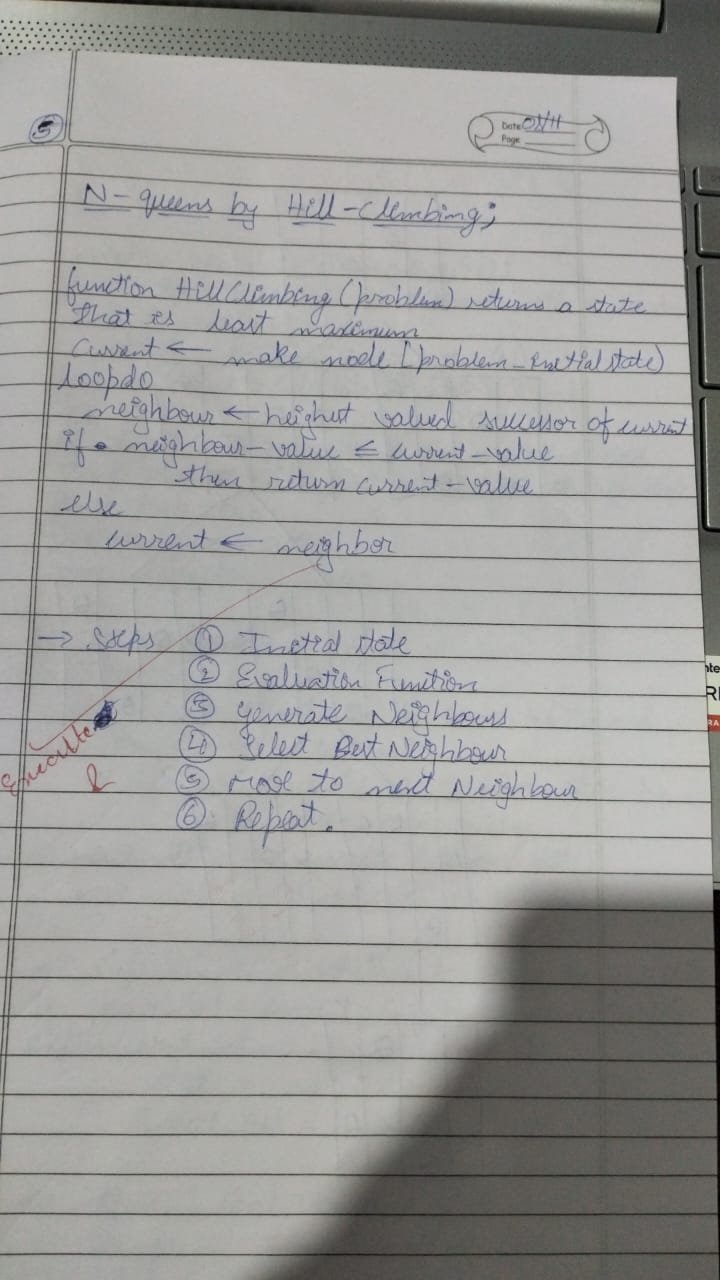 5
Date 08/11
Page
N-queens by Hill-Climbing;
function HillClimbing (problem) returns a state
that is least maximum
Current ← make node [problem-Initial state)
Loopdo
neighbour ← heighest valued successor of current
if neighbour-value ≤ current-value
then return current-value
else
current ← neighbor
→ Steps ① Initial state
② Evaluation Function
③ generate Neighbours
④ Select Best Neighbour
⑤ Move to next Neighbour
⑥ Repeat.
Executed